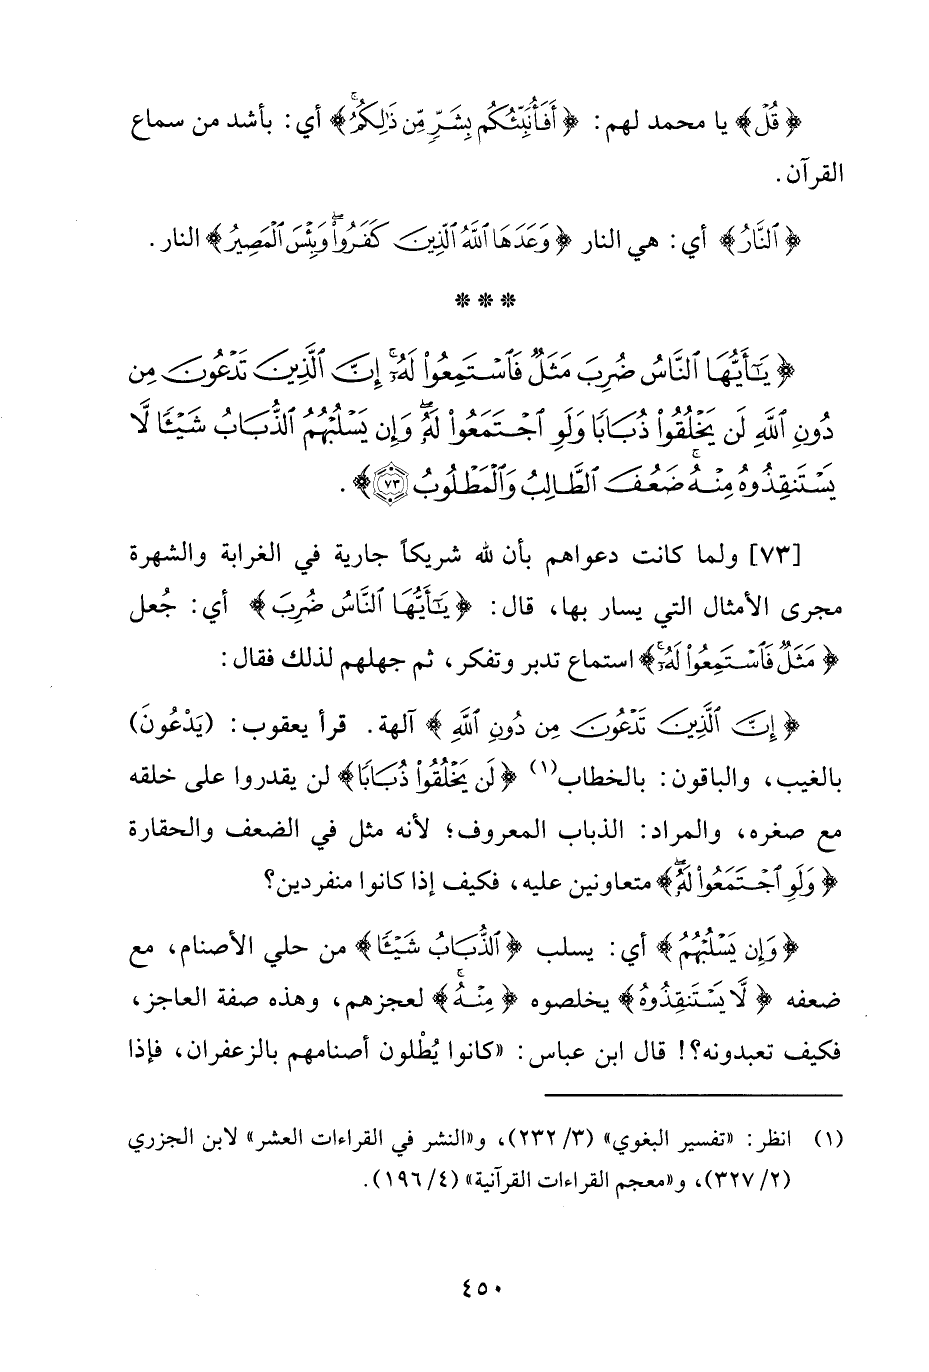 ﴿قُلْ﴾ يا محمد لهم: ﴿أَفَأُنَبِّئُكُم بِشَرٍّ مِّن ذَٰلِكُمُ﴾ أي: بأشد من سماع
القرآن.
﴿ٱلنَّارُ﴾ أي: هي النار ﴿وَعَدَهَا ٱللَّهُ ٱلَّذِينَ كَفَرُوا۟ۖ وَبِئْسَ ٱلْمَصِيرُ﴾ النار.
***
﴿يَٰٓأَيُّهَا ٱلنَّاسُ ضُرِبَ مَثَلٌ فَٱسْتَمِعُوا۟ لَهُۥٓۚ إِنَّ ٱلَّذِينَ تَدْعُونَ مِن
دُونِ ٱللَّهِ لَن يَخْلُقُوا۟ ذُبَابًا وَلَوِ ٱجْتَمَعُوا۟ لَهُۥۖ وَإِن يَسْلُبْهُمُ ٱلذُّبَابُ شَيْـًٔا لَّا
يَسْتَنقِذُوهُ مِنْهُۚ ضَعُفَ ٱلطَّالِبُ وَٱلْمَطْلُوبُ ٧٣﴾.
[٧٣] ولما كانت دعواهم بأن لله شريكاً جارية في الغرابة والشهرة
مجرى الأمثال التي يسار بها، قال: ﴿يَٰٓأَيُّهَا ٱلنَّاسُ ضُرِبَ﴾ أي: جُعل
﴿مَثَلٌ فَٱسْتَمِعُوا۟ لَهُۥٓۚ﴾ استماع تدبر وتفكر، ثم جهلهم لذلك فقال:
﴿إِنَّ ٱلَّذِينَ تَدْعُونَ مِن دُونِ ٱللَّهِ﴾ آلهة. قرأ يعقوب: (يَدْعُونَ)
بالغيب، والباقون: بالخطاب(١) ﴿لَن يَخْلُقُوا۟ ذُبَابًا﴾ لن يقدروا على خلقه
مع صغره، والمراد: الذباب المعروف؛ لأنه مثل في الضعف والحقارة
﴿وَلَوِ ٱجْتَمَعُوا۟ لَهُۥۖ﴾ متعاونين عليه، فكيف إذا كانوا منفردين؟
﴿وَإِن يَسْلُبْهُمُ﴾ أي: يسلب ﴿ٱلذُّبَابُ شَيْـًٔا﴾ من حلي الأصنام، مع
ضعفه ﴿لَّا يَسْتَنقِذُوهُ﴾ يخلصوه ﴿مِنْهُۚ﴾ لعجزهم، وهذه صفة العاجز،
فكيف تعبدونه؟! قال ابن عباس: «كانوا يُطْلون أصنامهم بالزعفران، فإذا
(١) انظر: «تفسير البغوي» (٣/ ٢٣٢)، و«النشر في القراءات العشر» لابن الجزري
(٢/ ٣٢٧)، و«معجم القراءات القرآنية» (٤/ ١٩٦).
٤٥٠